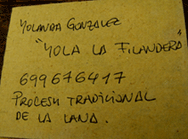 YOLANDA GONZALEZ
"YOLA LA FILANDERA"
699676417
PROCESU TRADICIONAL
DE LA LANA.